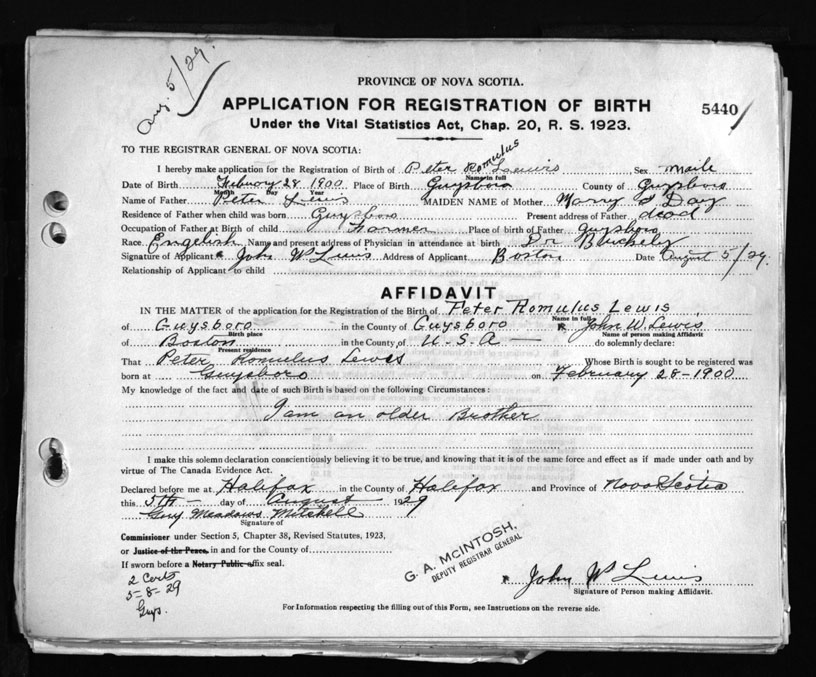 Aug. 5/29.
PROVINCE OF NOVA SCOTIA.
APPLICATION FOR REGISTRATION OF BIRTH
5440
Under the Vital Statistics Act, Chap. 20, R. S. 1923.
TO THE REGISTRAR GENERAL OF NOVA SCOTIA:
I hereby make application for the Registration of Birth of Peter Romulus Lewis Sex Male
Name in full
Date of Birth February 28 1900 Place of Birth Guysboro County of Guysboro
Month Day Year
Name of Father Peter Lewis MAIDEN NAME of Mother Mary S Day
Residence of Father when child was born Guysboro Present address of Father dead
Occupation of Father at Birth of child Farmer Place of birth of Father Guysboro
Race English Name and present address of Physician in attendance at birth Dr
Signature of Applicant John W Lewis Address of Applicant Boston Date August 5/29.
Relationship of Applicant to child
AFFIDAVIT
IN THE MATTER of the application for the Registration of the Birth of Peter Romulus Lewis
Name in full
of Guysboro in the County of Guysboro John W. Lewis
Birth place Name of person making Affidavit
of Boston in the County of U.S.A — do solemnly declare:
Present residence
That Peter Romulus Lewis Whose Birth is sought to be registered was
born at Guysboro on February 28-1900
My knowledge of the fact and date of such Birth is based on the following Circumstances:
I am an older Brother
I make this solemn declaration conscientiously believing it to be true, and knowing that it is of the same force and effect as if made under oath and by
virtue of The Canada Evidence Act.
Declared before me at Halifax in the County of Halifax and Province of Nova Scotia
this 5th day of August 1929
Guy Meadows Mitchell
Signature of
Commissioner under Section 5, Chapter 38, Revised Statutes, 1923,
or Justice of the Peace, in and for the County of
If sworn before a Notary Public affix seal.
G. A. McINTOSH,
DEPUTY REGISTRAR GENERAL
2 Certs
5-8-29
Guys.
John W Lewis
Signature of Person making Affidavit.
For Information respecting the filling out of this Form, see Instructions on the reverse side.